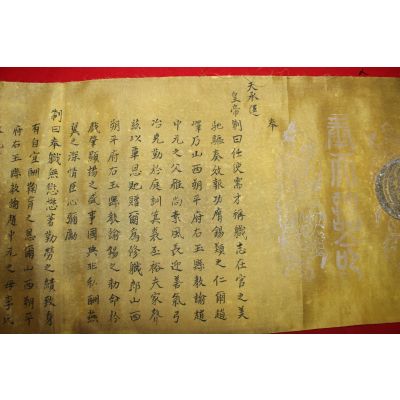 奉
天承運
皇帝制曰任使需才稱職志在官之美
馳驅奏效報功膺錫類之仁爾趙
乃山西朔平府右玉縣教諭趙
中元之父雅尚素風長迎善氣弓
冶克勤於庭訓箕裘丕裕夫家聲
茲以覃恩貤贈爾為修職郎山西
朔平府右玉縣教諭錫之勅命於
戲肇顯揚之盛事國典非私酬燕
翼之深情臣心彌勵
制曰奉職無愆懋著勤勞之績致身
有自宜酬鞠育之恩爾山西朔平
府右玉縣教諭趙中元之母李氏